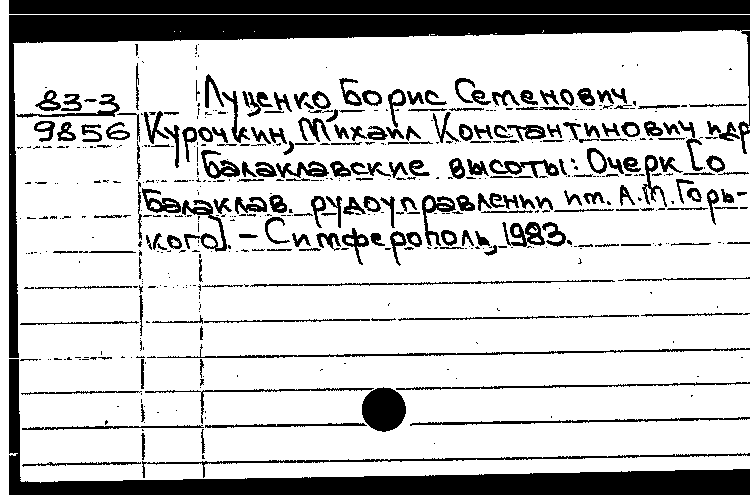 83-3
9856
Луценко, Борис Семенович.
Курочкин, Михаил Константинович и др
Балаклавские высоты: Очерк [о
Балаклав. рудоуправлении им. А.М. Горь-
кого]. – Симферополь, 1983.